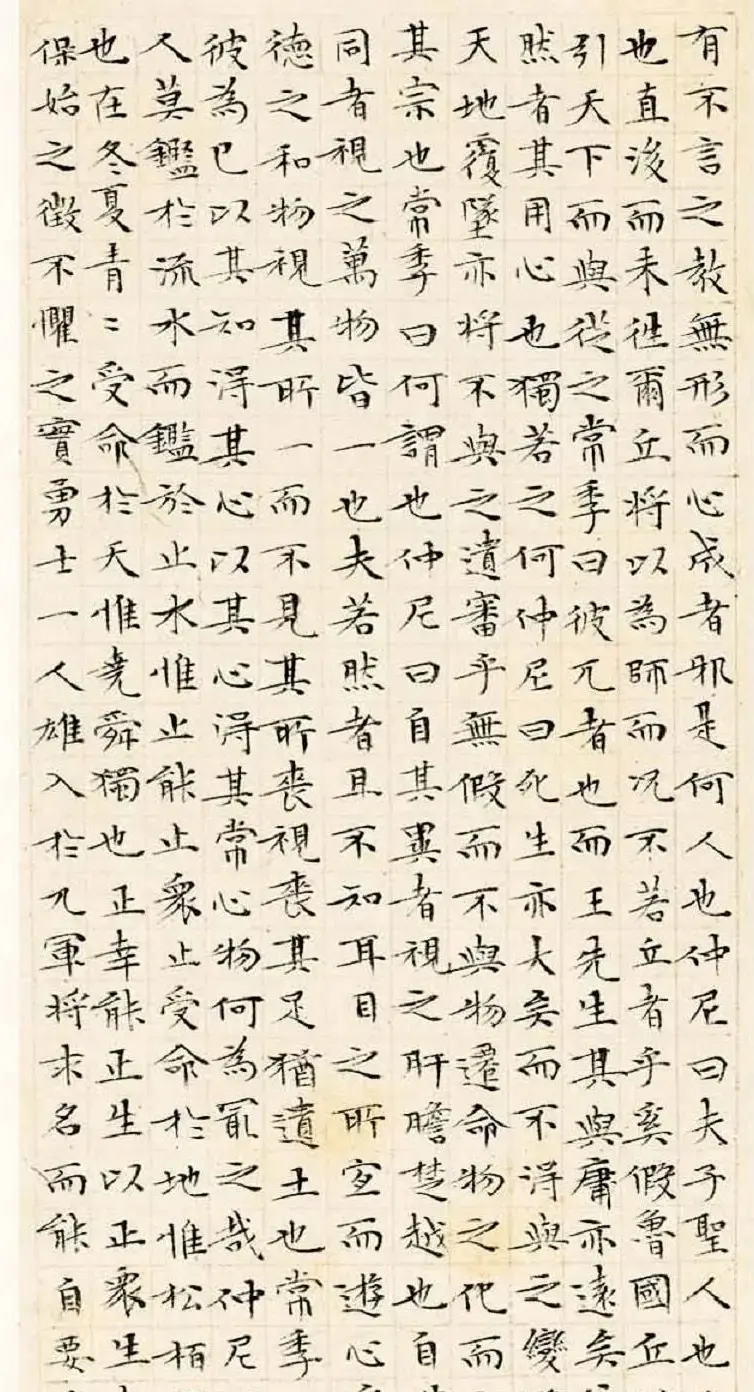 有不言之教無形而心成者邪是何人也仲尼曰夫子聖人也
也直後而未往爾丘將以為師而况不若丘者乎奚假魯國丘
引天下而與從之常季曰彼兀者也而王先生其與庸亦遠矣
然者其用心也獨若之何仲尼曰死生亦大矣而不得與之變
天地覆墜亦將不與之遺審乎無假而不與物遷命物之化而
其宗也常季曰何謂也仲尼曰自其異者視之肝膽楚越也自
同者視之萬物皆一也夫若然者且不知耳目之所宜而遊心
德之和物視其所一而不見其所喪視喪其足猶遺土也常季
彼為己以其知得其心以其心得其常心物何為冣之哉仲尼
人莫鑑於流水而鑑於止水惟止能止衆止受命於地惟松栢
也在冬夏青〻受命於天惟堯舜獨也正幸能正生以正衆生
保始之徵不懼之實勇士一人雄入於九軍將求名而能自要